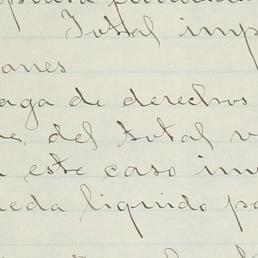 Total imp
ones
aga de derechos
e del total v
este caso im
ueda liquido po